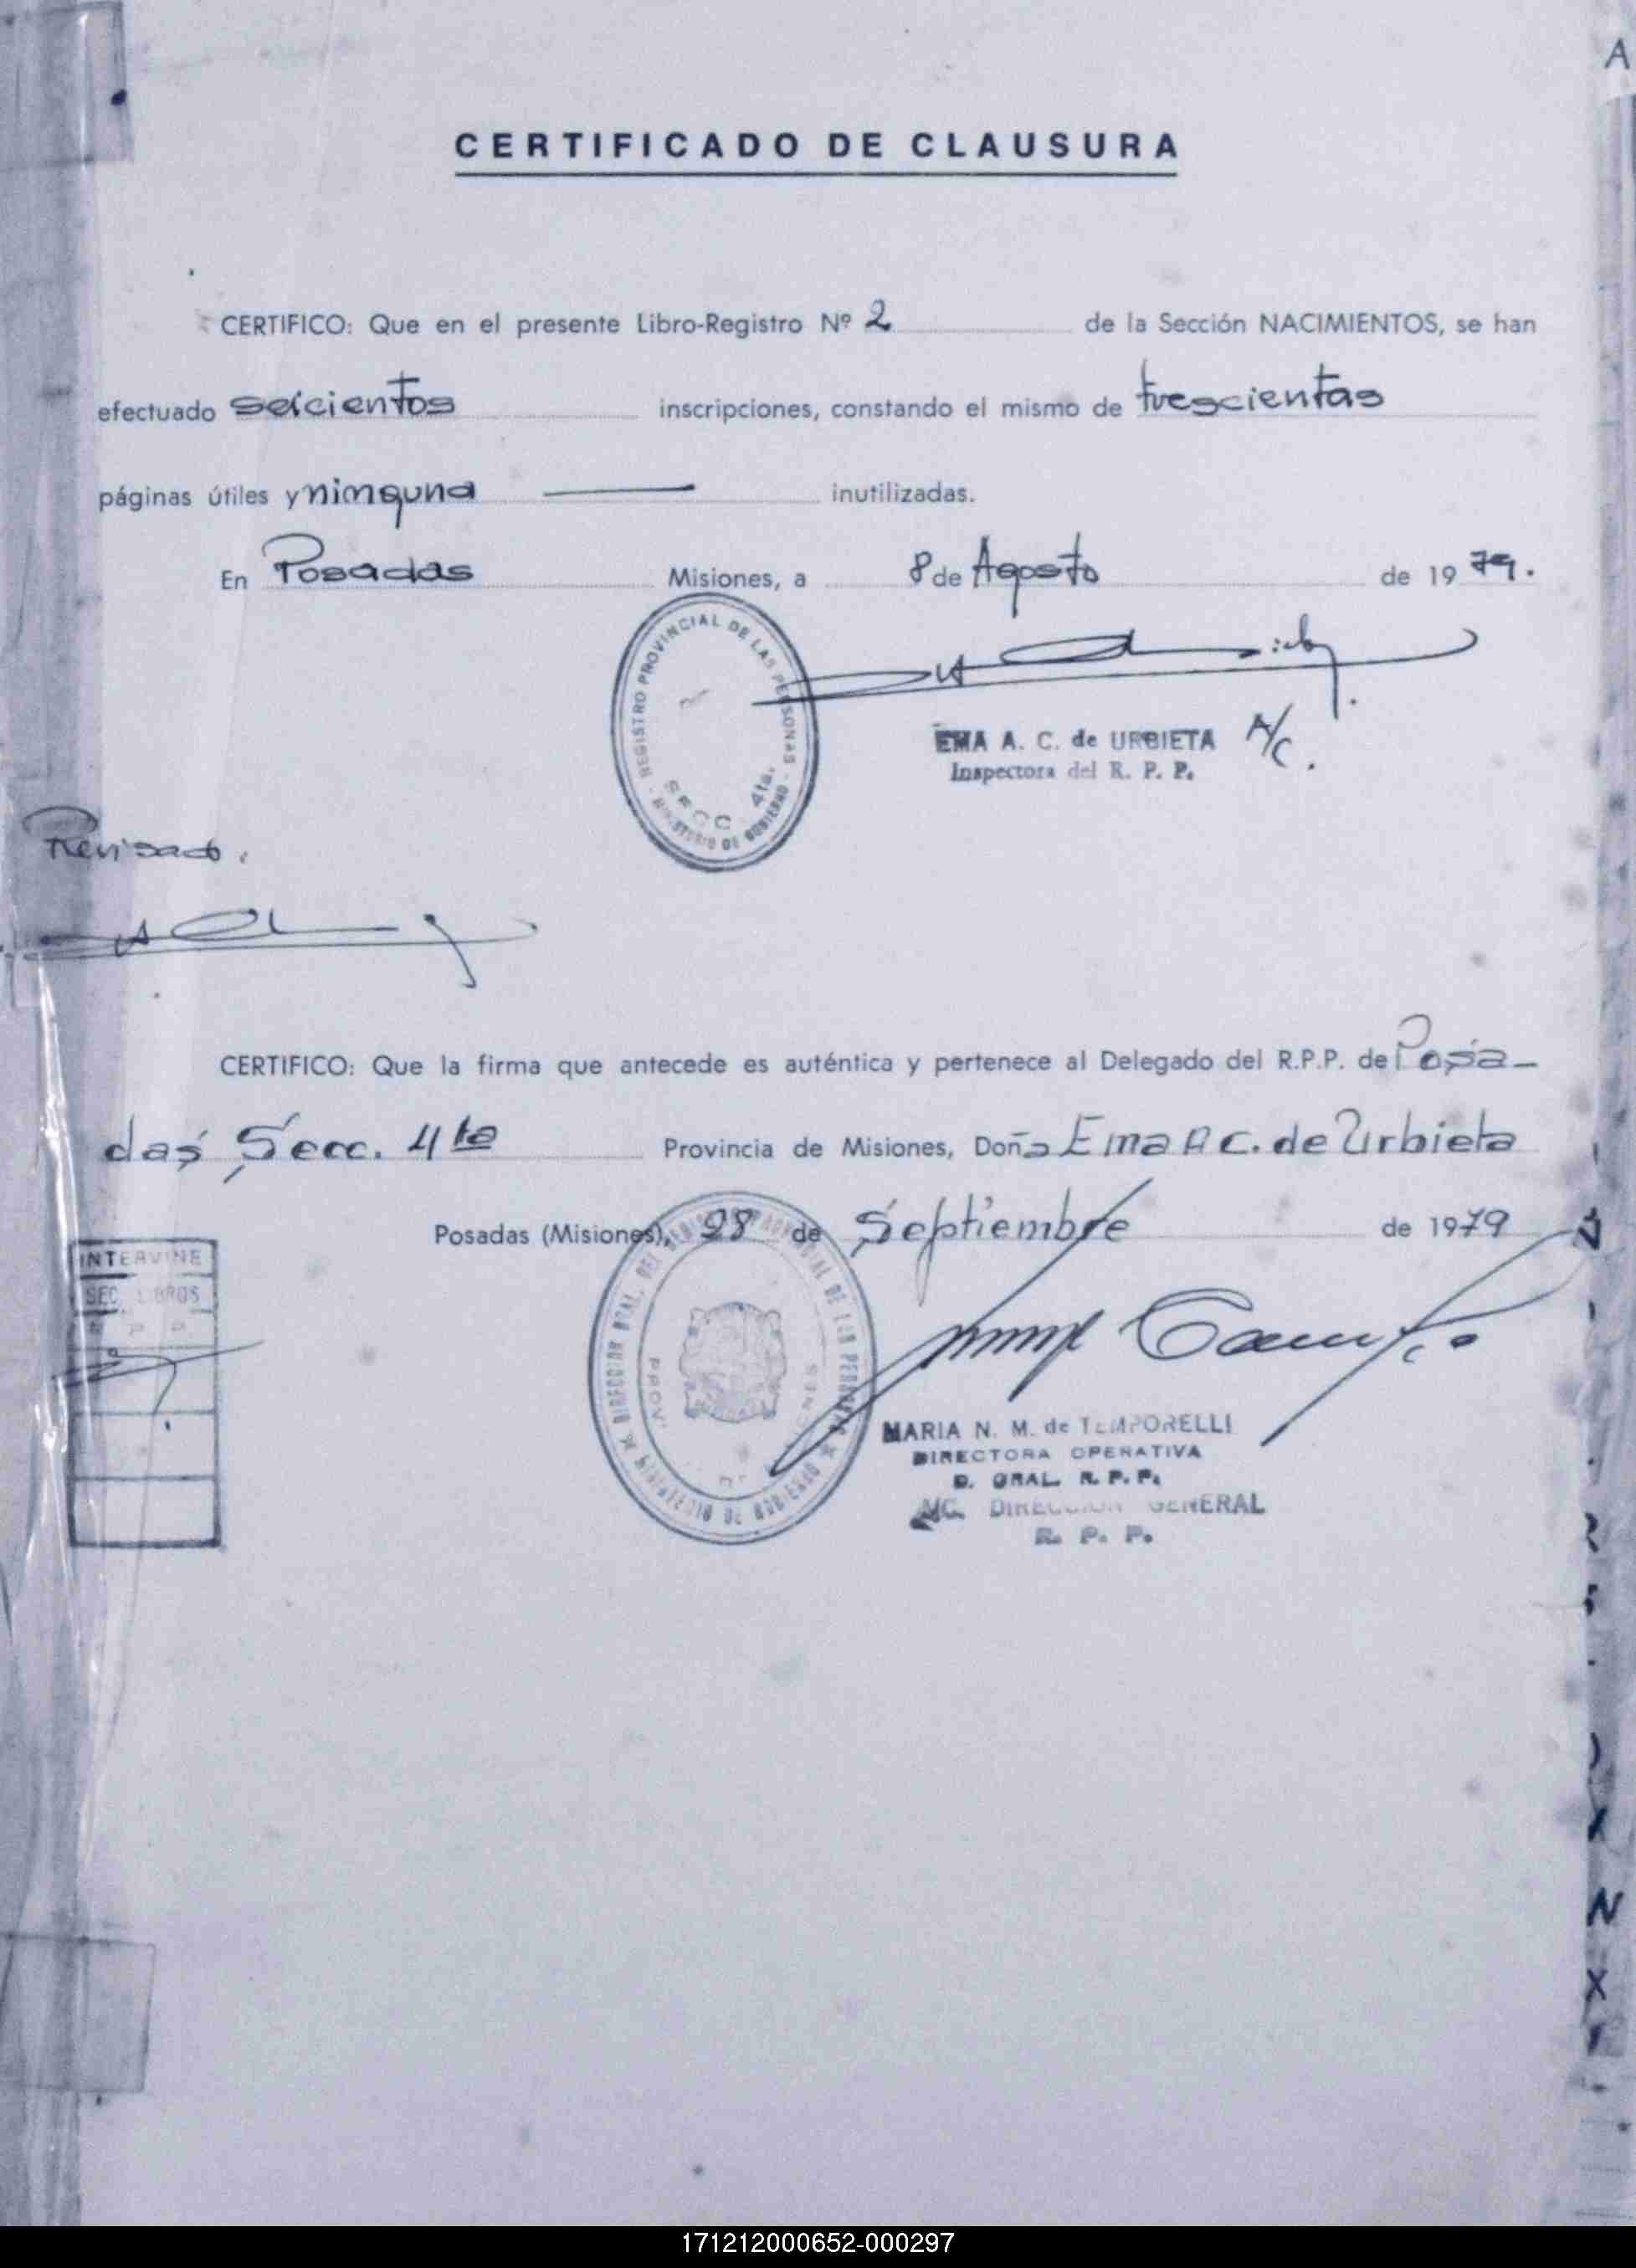 A
CERTIFICADO DE CLAUSURA
CERTIFICO: Que en el presente Libro-Registro Nº 2 de la Sección NACIMIENTOS, se han
efectuado seicientos inscripciones, constando el mismo de trescientas
páginas útiles y ninguna inutilizadas.
En Posadas Misiones, a 8 de Agosto de 1979.
REGISTRO PROVINCIAL DE LAS PERSONAS - MINISTERIO DE GOBIERNO -
SECC 4ta.
EMA A. C. de URBIETA A/C.
Inspectora del R. P. P.
Revisado.
CERTIFICO: Que la firma que antecede es auténtica y pertenece al Delegado del R.P.P. de Posa-
das Secc. 4ta Provincia de Misiones, Doña Ema A C. de Urbieta
Posadas (Misiones), 28 de Septiembre de 1979
INTERVINE
SEC. LIBROS
R P P
DIRECCION GRAL. DEL REGISTRO PROVINCIAL DE LAS PERSONAS
MINISTERIO DE GOBIERNO
PROV. MISIONES
MARIA N. M. de TEMPORELLI
DIRECTORA OPERATIVA
D. GRAL. R. P. P.
A/C. DIRECCION GENERAL
R. P. P.
171212000652-000297